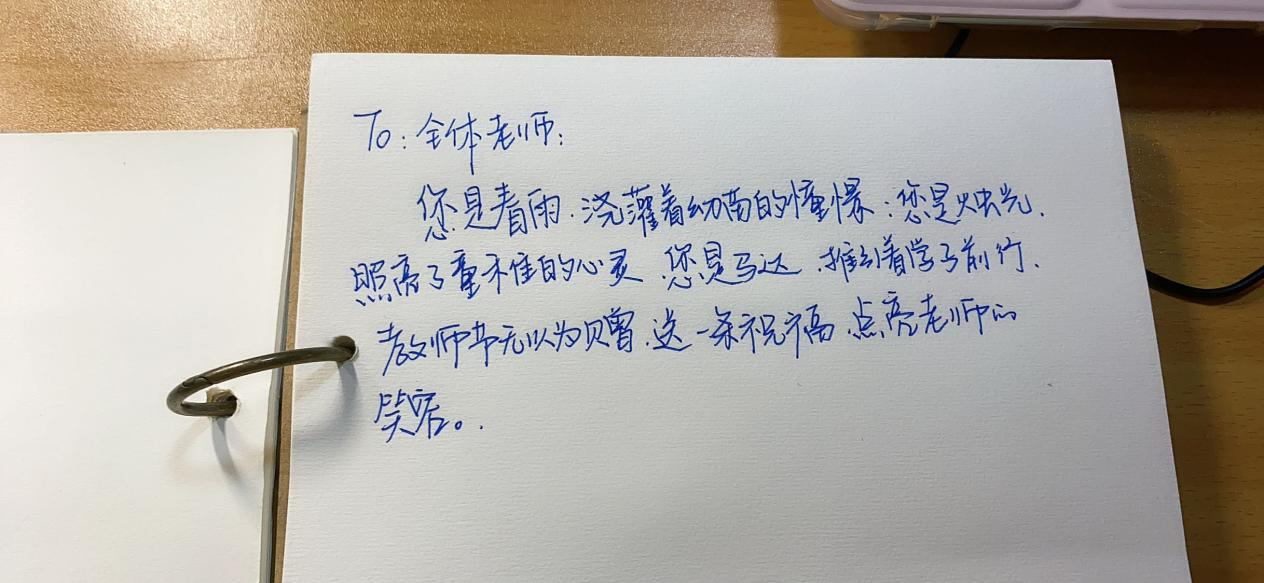 To：全体老师：
您是春雨，浇灌着幼苗的憧憬；您是烛光，
照亮了童稚的心灵 您是马达，推动着学子前行，
教师节无以为赠，送一条祝福，点亮老师的
笑容。